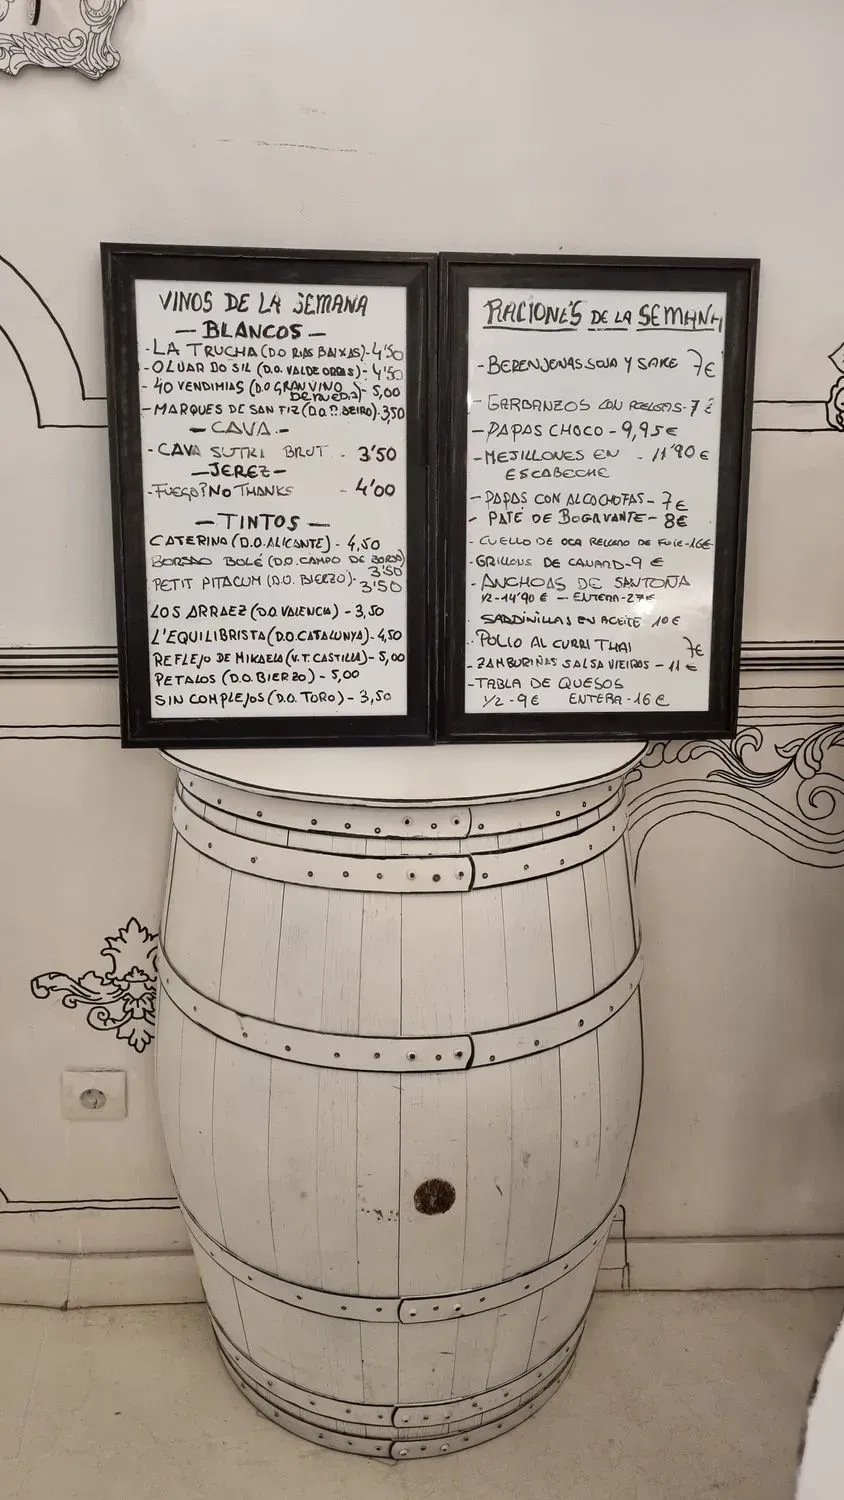 VINOS DE LA SEMANA
— BLANCOS —
- LA TRUCHA (D.O RIAS BAIXAS) - 4'50
- O LUAR DO SIL (D.O. VALDEORRAS) - 4'50
- 40 VENDIMIAS (D.O GRAN VINO - 5,00
DE RUEDA)
- MARQUES DE SAN FIZ (D.O. - 3,50
— CAVA —
- CAVA SUTRA BRUT - 3'50
— JEREZ —
- FUEGO? NO THANKS - 4'00
— TINTOS —
CATERINA (D.O. ALICANTE) - 4,50
BORSAO BOLÉ (D.O. CAMPO DE BORJA)
3'50
PETIT PITACUM (D.O. BIERZO) - 3'50
LOS ARRAEZ (D.O. VALENCIA) - 3,50
L'EQUILIBRISTA (D.O. CATALUNYA) - 4,50
REFLEJO DE MIKAELA (V.T. CASTILLA) - 5,00
PETALOS (D.O. BIERZO) - 5,00
SIN COMPLEJOS (D.O. TORO) - 3,50
RACIONES DE LA SEMANA
- BERENJENAS SOJA Y SAKE 7€
- GARBANZOS CON - 7€
- PAPAS CHOCO - 9,95€
- MEJILLONES EN - 11'90€
ESCABECHE
- PAPAS CON ALCACHOFAS - 7€
- PATÉ DE BOGAVANTE - 8€
- CUELLO DE OCA RELLENO DE FOIE - 16€
- GRILLONS DE CANARD - 9€
- ANCHOAS DE SANTOÑA
1/2 - 14'90€ — ENTERA - 27€
- SARDINILLAS EN ACEITE 10€
- POLLO AL CURRI THAI 7€
- ZAMBURIÑAS SALSA VIEIRAS - 11€
- TABLA DE QUESOS
1/2 - 9€ ENTERA - 16€